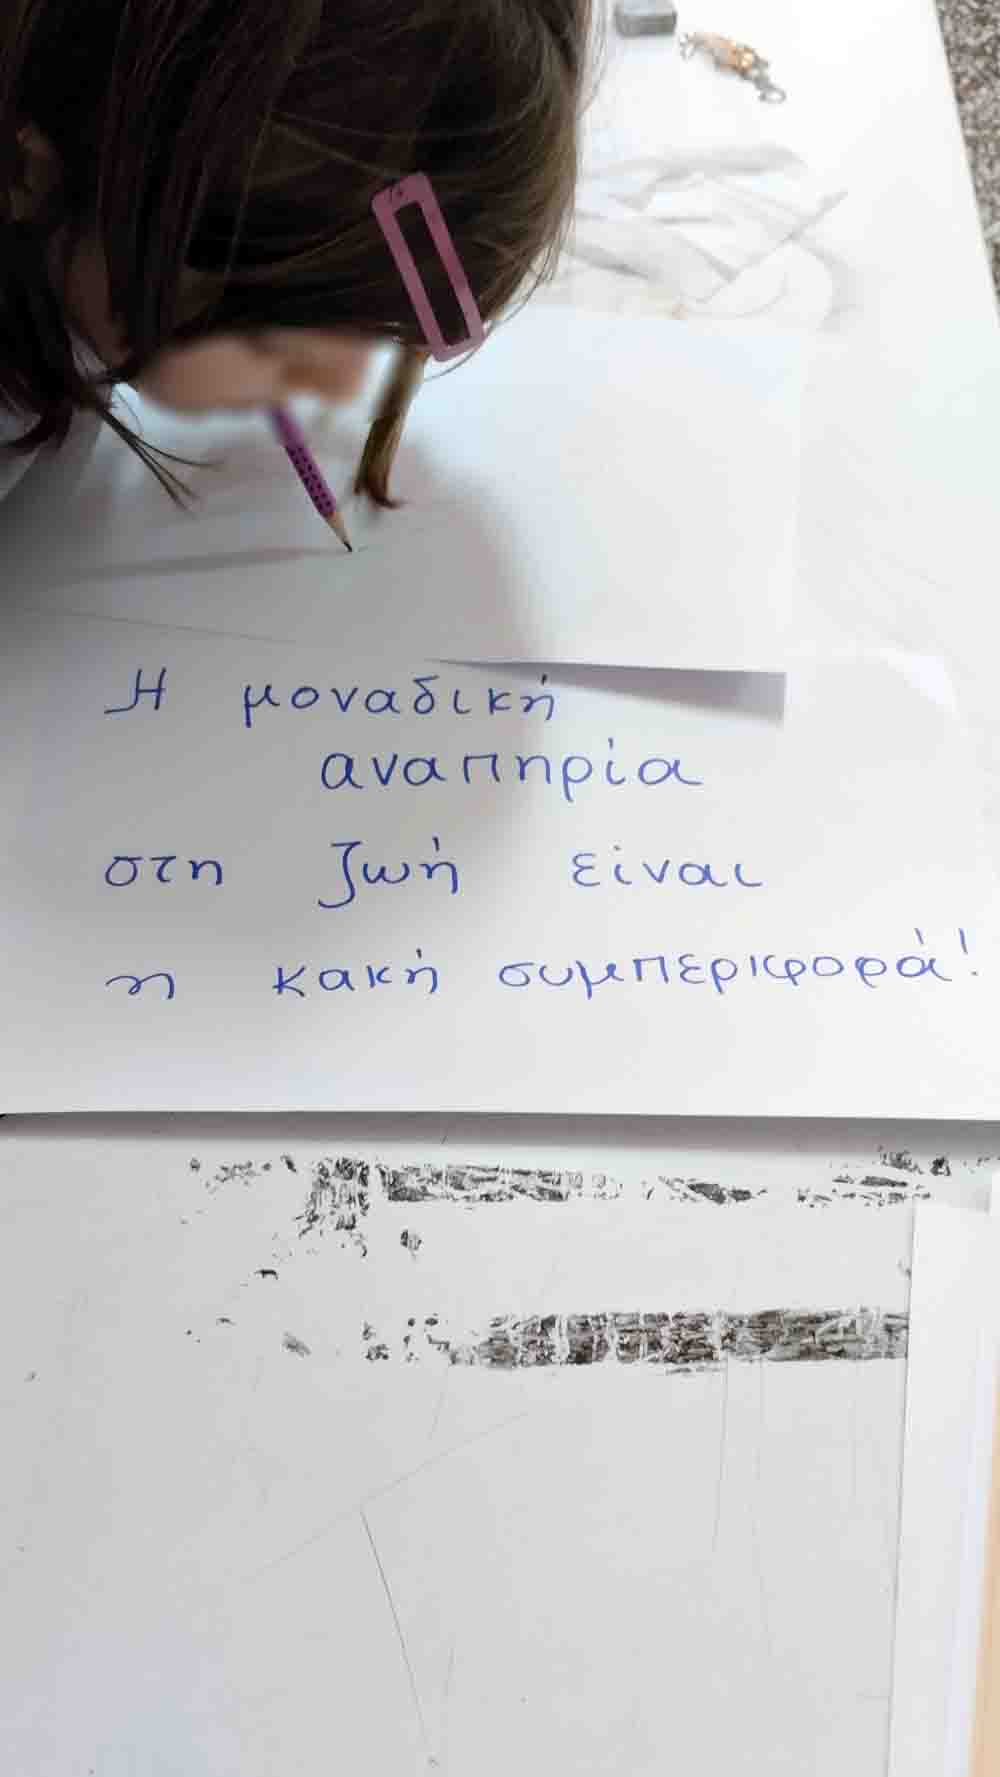 Η μοναδική
αναπηρία
στη ζωή είναι
η κακή συμπεριφορά!